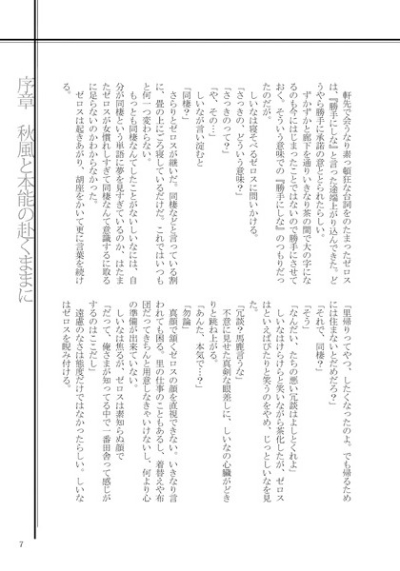 序章　秋風と本能の赴くままに
軒先で会うなり素っ頓狂な台詞をのたまったゼロス
は、『勝手にしな』と言った途端上がり込んできた。ど
うやら勝手に承諾の意ととられたらしい。
ずかずかと廊下を通りいきなり茶の間で大の字にな
るのも今にはじまったことではないので勝手にさせて
おく、そういう意味での『勝手にしな』のつもりだっ
たのだが。
しいなは寝そべるゼロスに問いかける。
「さっきの、どういう意味？」
「さっきのって？」
「や、その…」
しいなが言い淀むと
「同棲？」
さらりとゼロスが継いだ。同棲などと言っている割
に、畳の上にごろ寝しているだけだ。これではいつも
と何一つ変わらない。
もっとも同棲なんてしたことがないしいなには、自
分が同棲という単語に夢を見すぎているのか、はたま
たゼロスが女慣れしすぎて同棲なんて意識するに取る
に足らないのかわからなかった。
ゼロスは起きあがり、胡座をかいて更に言葉を続け
る。
「里帰りってやつ、したくなったのよ。でも帰るため
には住まないとだめだろ？」
「それで、同棲？」
「そう」
「なんだい、たちの悪い冗談はよしとくれよ」
しいなはけらけらと笑いながら茶化したが、ゼロス
はといえばぴたりと笑うのをやめ、じっとしいなを見
た。
「冗談？馬鹿言うな」
不意に見せた真剣な眼差しに、しいなの心臓がどき
りと跳ね上がる。
「あんた、本気で…？」
「勿論」
真顔で頷くゼロスの顔を直視できない。いきなり言
われても困る。里の仕事のこともあるし、着替えや布
団だってきちんと用意しなきゃいけないし、何より心
の準備が出来ていない。
しいなは焦るが、ゼロスは素知らぬ顔で
「だって、俺さまが知ってる中で一番田舎って感じが
するのはここだし」
遠慮のなさは態度だけではなかったらしい、しいな
はゼロスを睨み付ける。
7